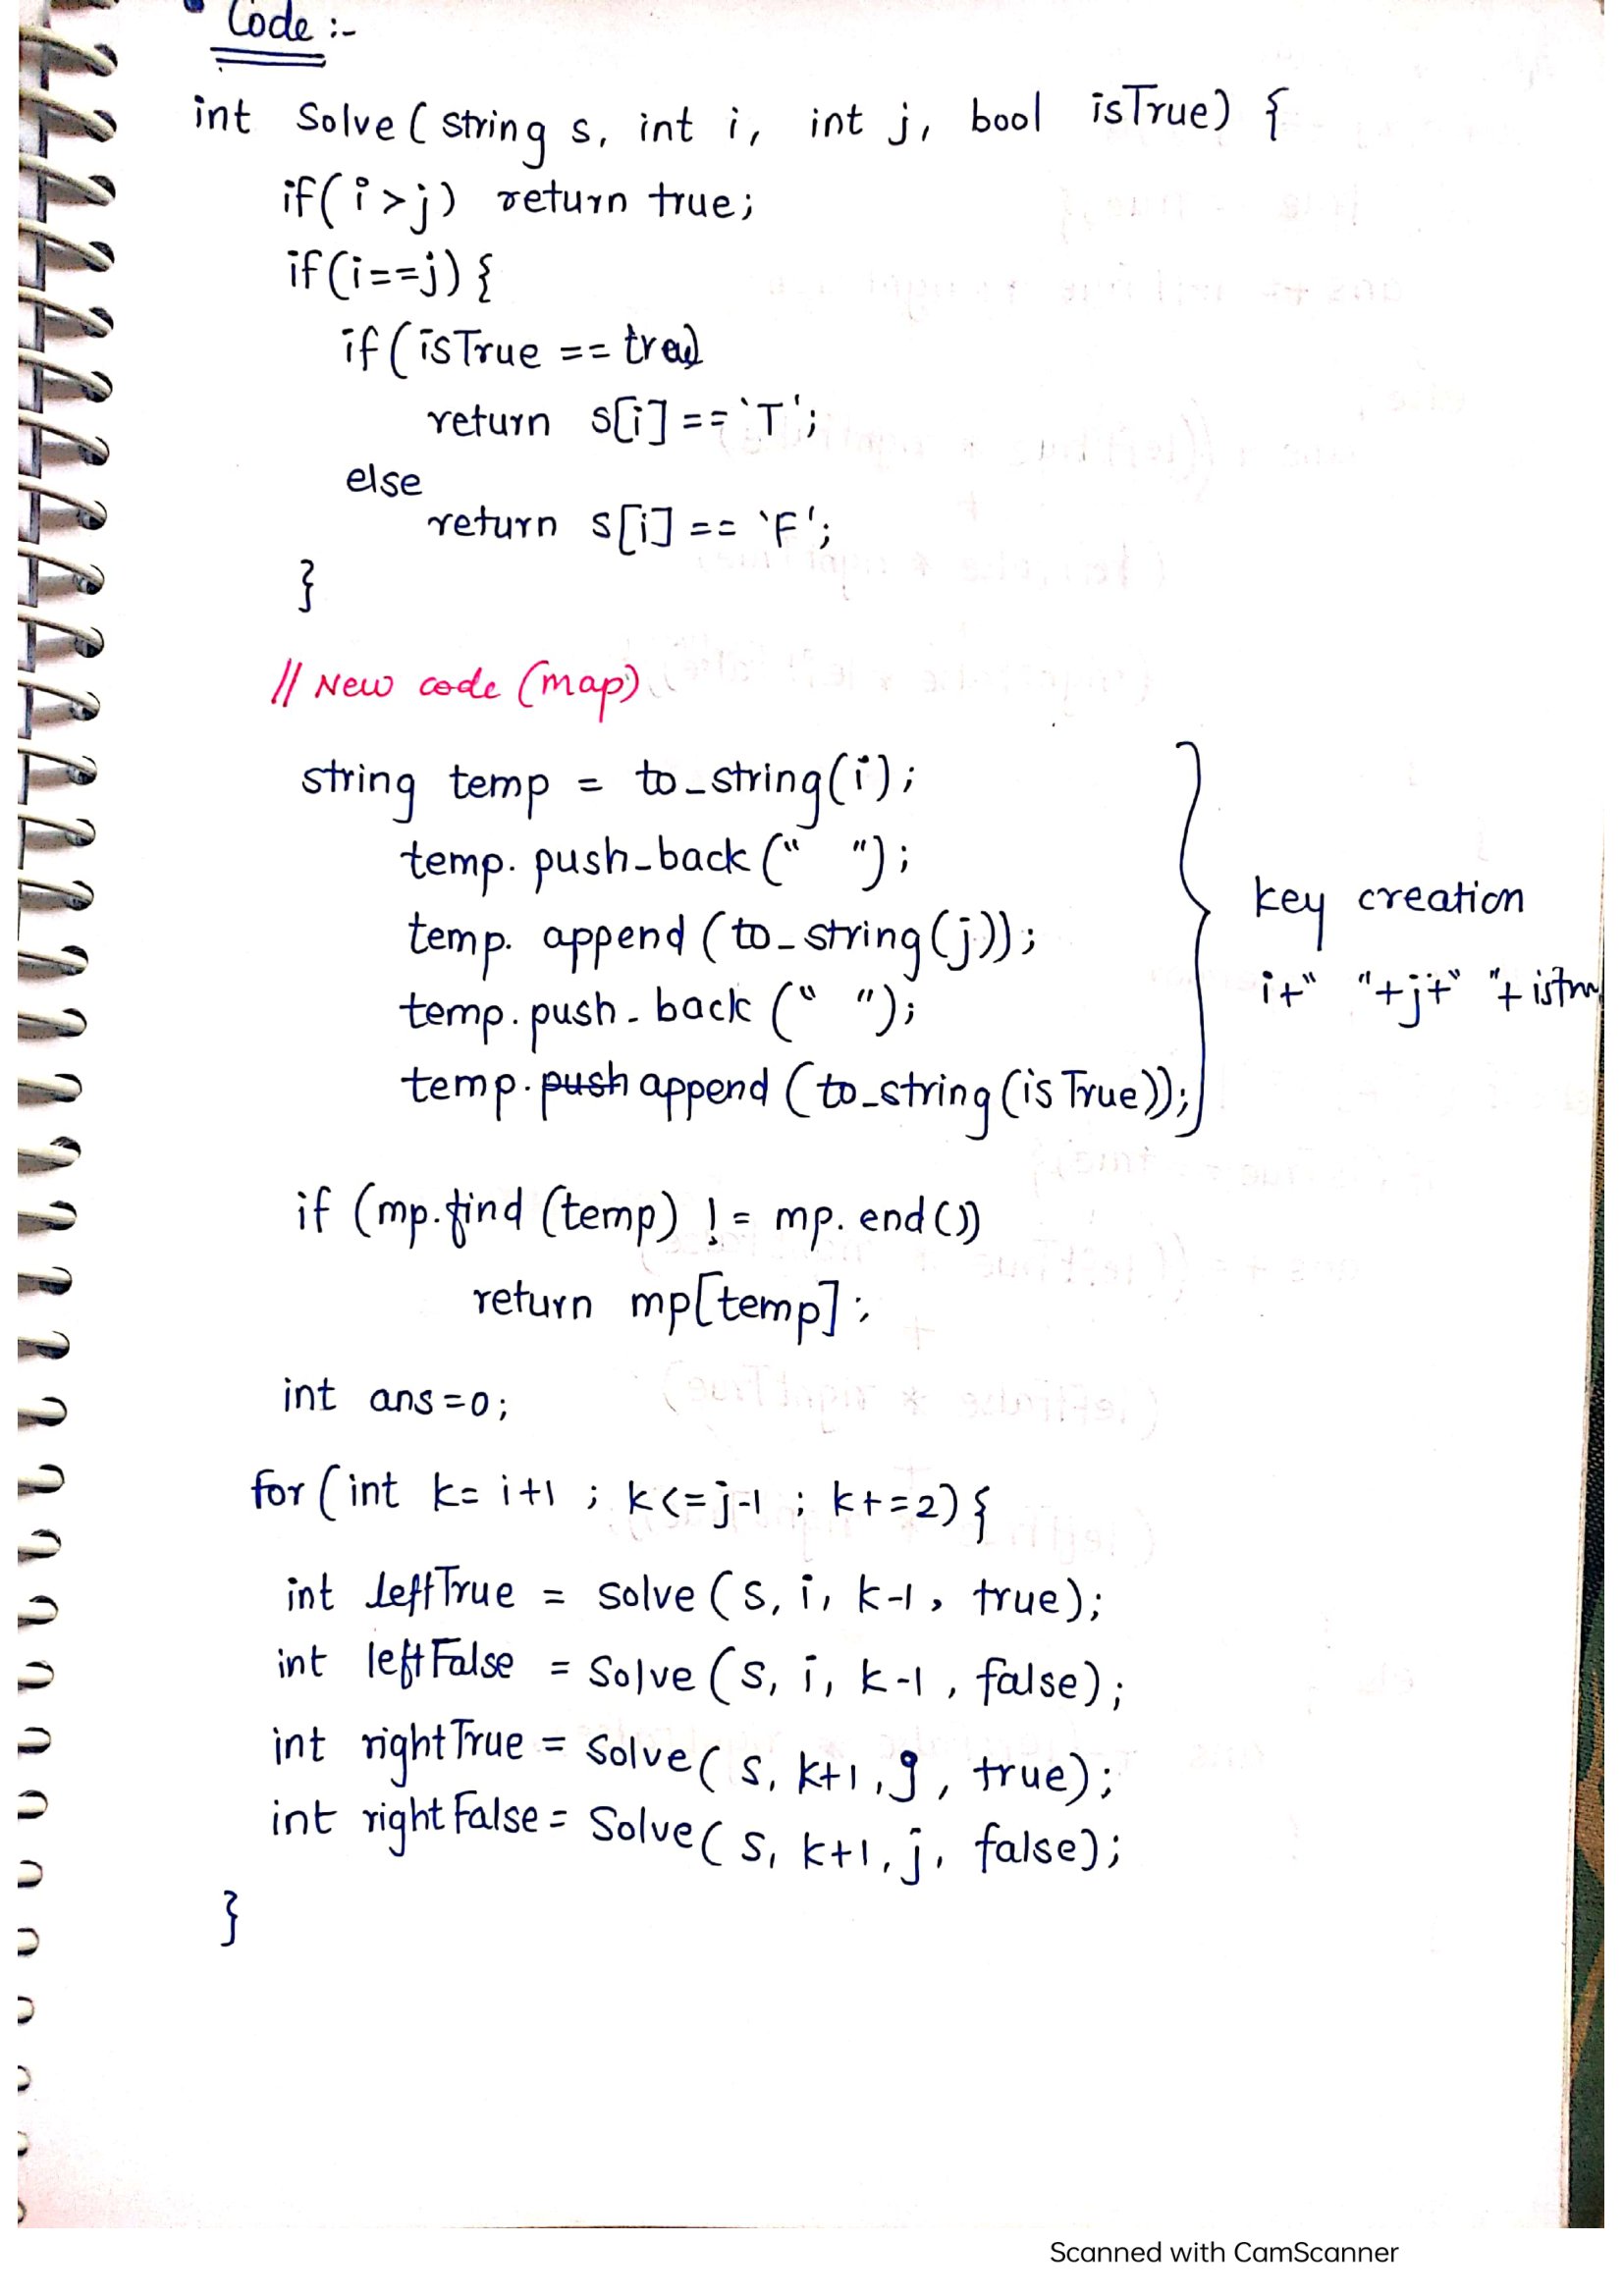 Code :-
int Solve ( string s, int i, int j, bool isTrue) {
if( i > j) return true;
if(i==j) {
if( isTrue ==
return s[i] == `T';
else
return s[i] == `F';
}
// New code (map)
string temp = to_string(i);
temp. push_back (" ");
temp. append (to_string(j));
temp. push_back (" ");
temp. push append (to_string(isTrue));
key creation
i+" "+j+" "+
if (mp.find (temp) != mp. end ())
return mp[temp];
int ans=0;
for ( int k= i+1 ; k<=j-1 ; k+=2) {
int leftTrue = solve (s, i, k-1, true);
int leftFalse = Solve (s, i, k-1, false);
int rightTrue = Solve( s, k+1, j, true);
int rightFalse = Solve( s, k+1, j, false);
}
Scanned with CamScanner